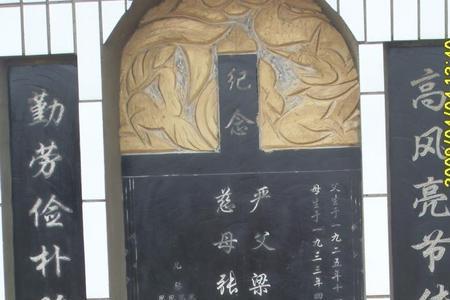 高风亮节
纪念
父生于一九二五年十
母生于一九三三年四
严父梁
慈母张
勤劳俭朴